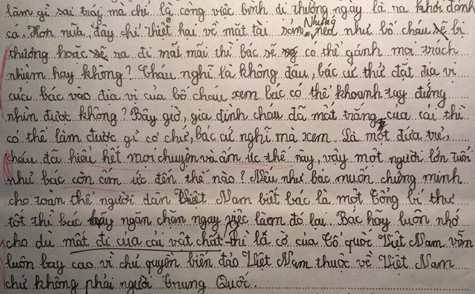 làm gì sai trái mà chỉ là công việc bình dị thường ngày là ra khơi đánh
cá. Hơn nữa, đây chỉ thiệt hại về mặt tài sản, Nhưng nếu như bố cháu bị
thương hoặc ra đi mất mãi thì bác có thể gánh mọi trách
nhiệm hay không? Cháu nghĩ là không đâu, bác cứ thử đặt địa vị
của bác vào địa vị của bố cháu xem bác có thể khoanh tay đứng
nhìn được không? Bây giờ, gia đình cháu đã mất trắng của cải thì
có thể làm được gì cơ chứ, bác cứ nghĩ mà xem. Là một đứa trẻ,
cháu đã hiểu hết mọi chuyện và ấm ức thế này, vậy một người lớn tuổi
như bác còn ấm ức đến thế nào? Nếu như bác muốn chứng minh
cho toàn thể người dân Việt Nam biết bác là một Tổng bí thư
tốt thì bác hãy ngăn chặn ngay việc làm đó lại. Bác hãy luôn nhớ
cho dù mất đi của cải vật chất thì lá cờ của Tổ quốc Việt Nam vẫn
luôn bay cao vì chủ quyền biển đảo Việt Nam thuộc về Việt Nam
chứ không phải người Trung Quốc.